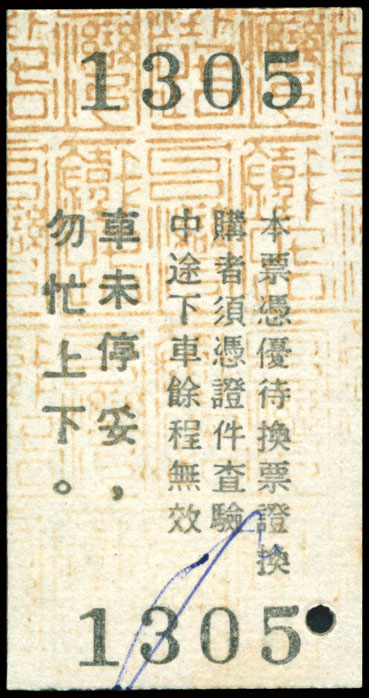 1305
本票憑優待換票證換
購者須憑證件查驗
中途下車餘程無效
車未停妥，
勿忙上下。
1305